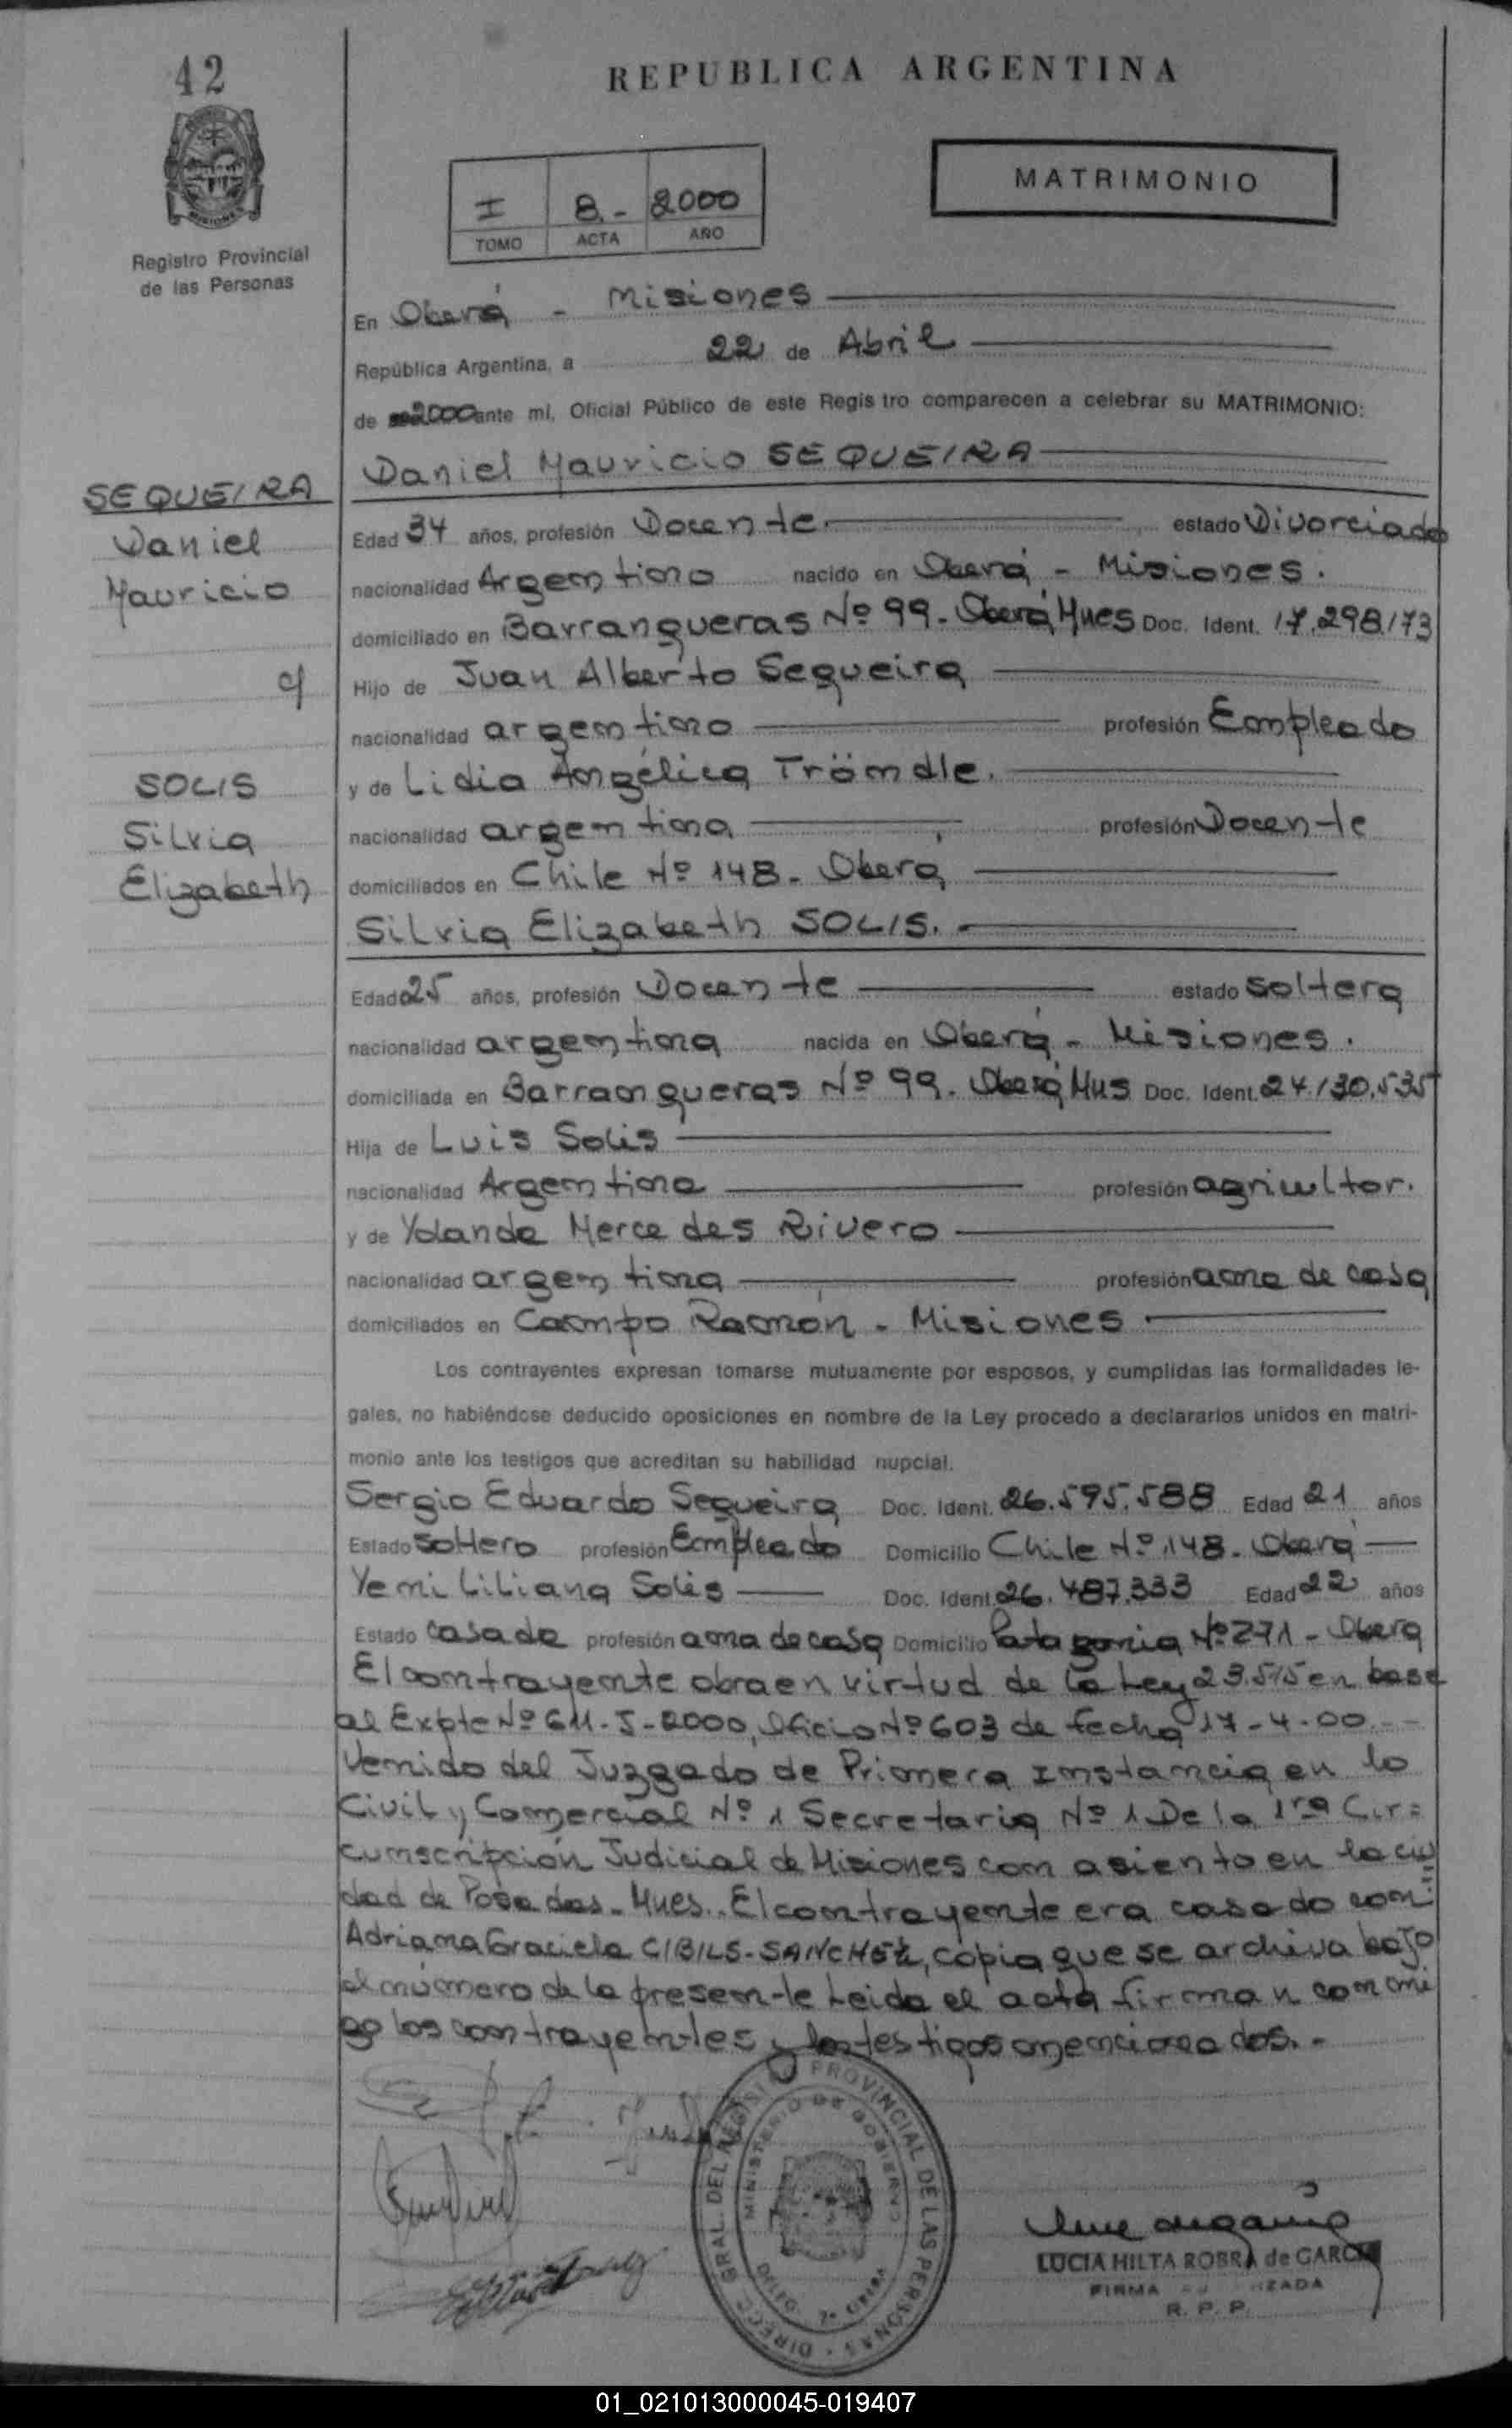 42
REPUBLICA ARGENTINA
MISIONES
Registro Provincial
de las Personas
I 8.- 2000
TOMO ACTA AÑO
MATRIMONIO
En Oberá - Misiones
República Argentina, a 22 de Abril
de 2000 ante mí, Oficial Público de este Registro comparecen a celebrar su MATRIMONIO:
Daniel Mauricio SEQUEIRA
SEQUEIRA
Daniel
Mauricio
c/
SOLIS
Silvia
Elizabeth
Edad 34 años, profesión Docente. estado Divorciado
nacionalidad Argentino nacido en Oberá - Misiones.
domiciliado en Barranqueras Nº 99. Oberá, Mnes Doc. Ident. 17.298.173
Hijo de Juan Alberto Sequeira
nacionalidad argentino profesión Empleado
y de Lidia Angélica Trömdle.
nacionalidad argentina profesión Docente
domiciliados en Chile Nº 148. Oberá
Silvia Elizabeth SOLIS.
Edad 25 años, profesión Docente estado soltera
nacionalidad argentina nacida en Oberá - Misiones.
domiciliada en Barranqueras Nº 99. Oberá, Mns Doc. Ident. 24.130.535
Hija de Luis Solis
nacionalidad Argentina profesión agricultor.
y de Yolanda Mercedes Rivero
nacionalidad argentina profesión ama de casa
domiciliados en Campo Ramón - Misiones
Los contrayentes expresan tomarse mutuamente por esposos, y cumplidas las formalidades le-
gales, no habiéndose deducido oposiciones en nombre de la Ley procedo a declararlos unidos en matri-
monio ante los testigos que acreditan su habilidad nupcial.
Sergio Eduardo Sequeira Doc. Ident. 26.595.588 Edad 21 años
Estado soltero profesión Empleado Domicilio Chile Nº 148. Oberá
Yemi Liliana Solis Doc. Ident. 26.487.333 Edad 22 años
Estado casada profesión ama de casa Domicilio Patagonia Nº 271 - Oberá
El contrayente obra en virtud de la Ley 23.515 en base
al Expte Nº 611-S-2000, Oficio Nº 603 de fecha 17-4-00.--
Venido del Juzgado de Primera Instancia en lo
Civil y Comercial Nº 1 Secretaria Nº 1 De la 1ra Cir=
cunscripción Judicial de Misiones con asiento en la ciu=
dad de Posadas. Mnes.. El contrayente era casado con:
Adriana Graciela CIBILS-SANCHEZ, copia que se archiva bajo
el número de la presente Leida el acta firman conmi
go los contrayentes y los testigos mencionados.-
DIRECC. GRAL. DEL REGISTRO PROVINCIAL DE LAS PERSONAS
MINISTERIO DE GOBIERNO
DELEG. OBERA
LUCIA HILTA ROBRA de GARCIA
FIRMA AUTORIZADA
R. P. P.
01_021013000045-019407